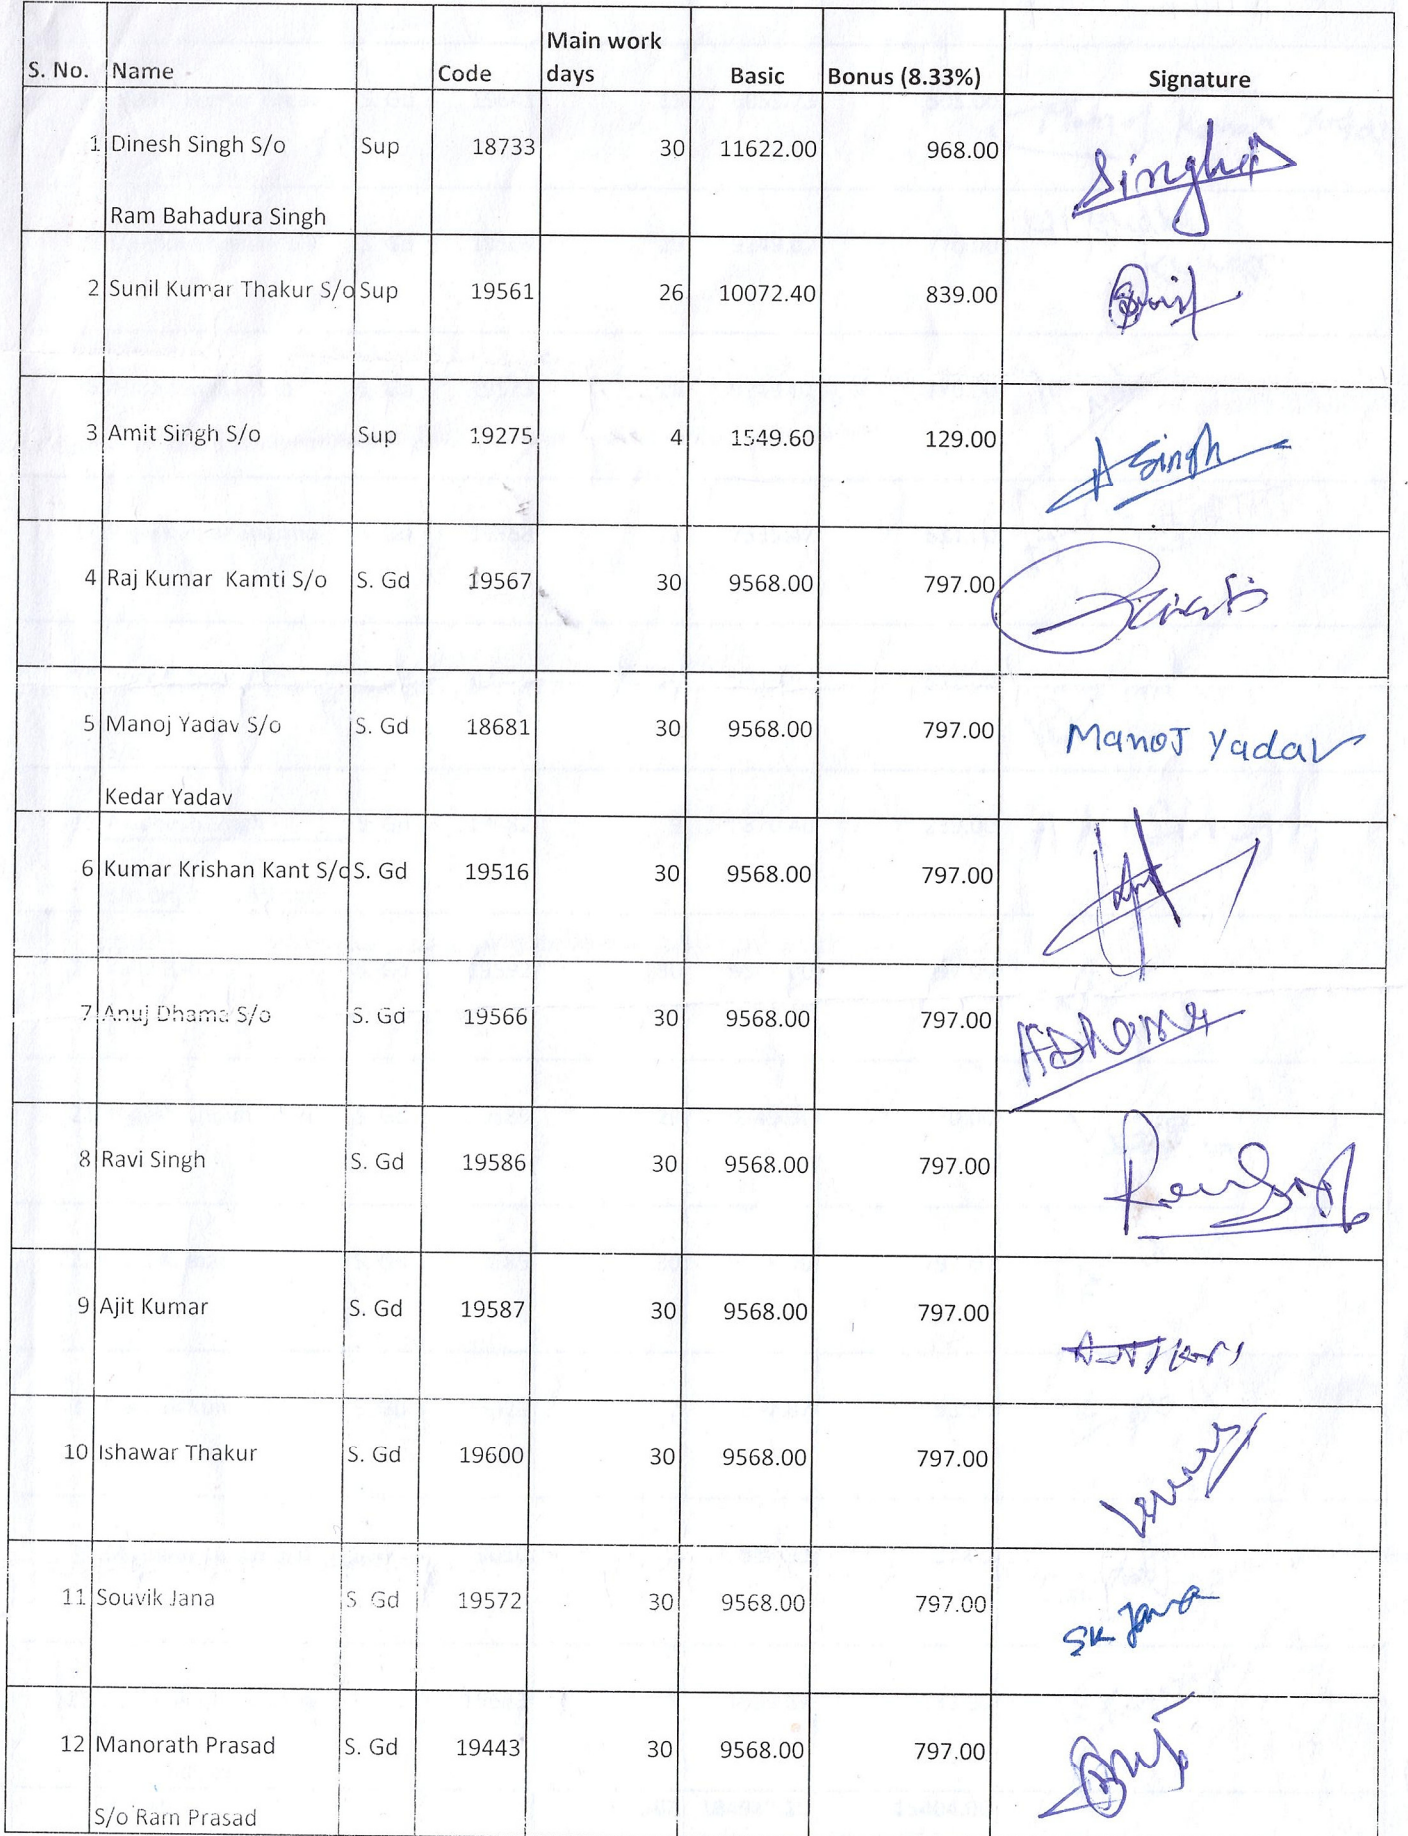 S. No. Name Code Main work days Basic Bonus (8.33%) Signature
1 Dinesh Singh S/o Sup 18733 30 11622.00 968.00 Singh
Ram Bahadura Singh
2 Sunil Kumar Thakur S/o Sup 19561 26 10072.40 839.00
3 Amit Singh S/o Sup 19275 4 1549.60 129.00 A Singh
4 Raj Kumar Kamti S/o S. Gd 19567 30 9568.00 797.00
5 Manoj Yadav S/o S. Gd 18681 30 9568.00 797.00 Manoj Yadav
Kedar Yadav
6 Kumar Krishan Kant S/o S. Gd 19516 30 9568.00 797.00
7 Anuj Dhama S/o S. Gd 19566 30 9568.00 797.00 ADhama
8 Ravi Singh S. Gd 19586 30 9568.00 797.00
9 Ajit Kumar S. Gd 19587 30 9568.00 797.00
10 Ishawar Thakur S. Gd 19600 30 9568.00 797.00
11 Souvik Jana S. Gd 19572 30 9568.00 797.00 SK Jana
12 Manorath Prasad S. Gd 19443 30 9568.00 797.00
S/o Ram Prasad